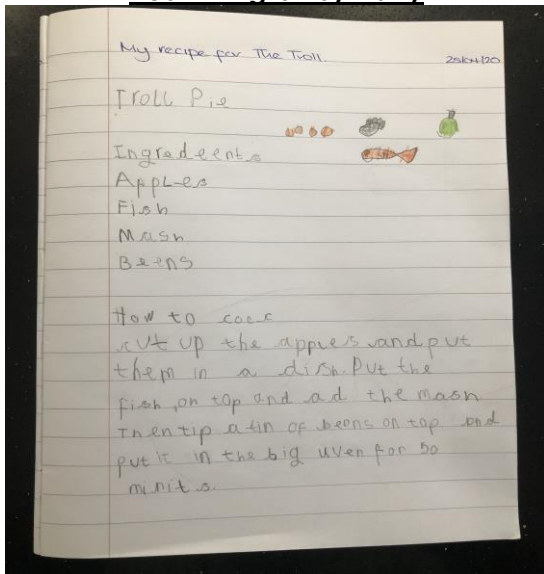 My recipe for The Troll. 25/04/20
Troll Pie
Ingredeents
Apples
Fish
Mash
Beens
How to cook
cut up the apples and put
them in a dish. Put the
fish on top and ad the mash.
Then tip a tin of beens on top and
put it in the big uven for 50
minits.